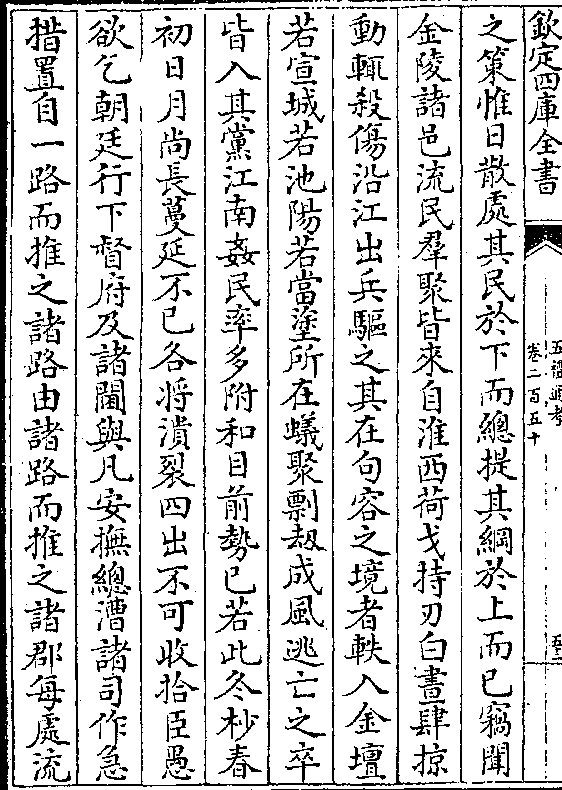 欽定四庫全書
五禮通考
卷二百五十
之策惟日散處其民於下而總提其綱於上而已竊聞
金陵諸邑流民羣聚皆來自淮西荷戈持刃白晝肆掠
動輒殺傷沿江出兵驅之其在句容之境者軼入金壇
若宣城若池陽若當塗所在蟻聚剽刼成風逃亡之卒
皆入其黨江南姦民率多附和目前勢已若此冬杪春
初日月尚長蔓延不已各將潰裂四出不可收拾臣愚
欲乞朝廷行下督府及諸閫與凡安撫總漕諸司作急
措置自一路而推之諸路由諸路而推之諸郡每處流